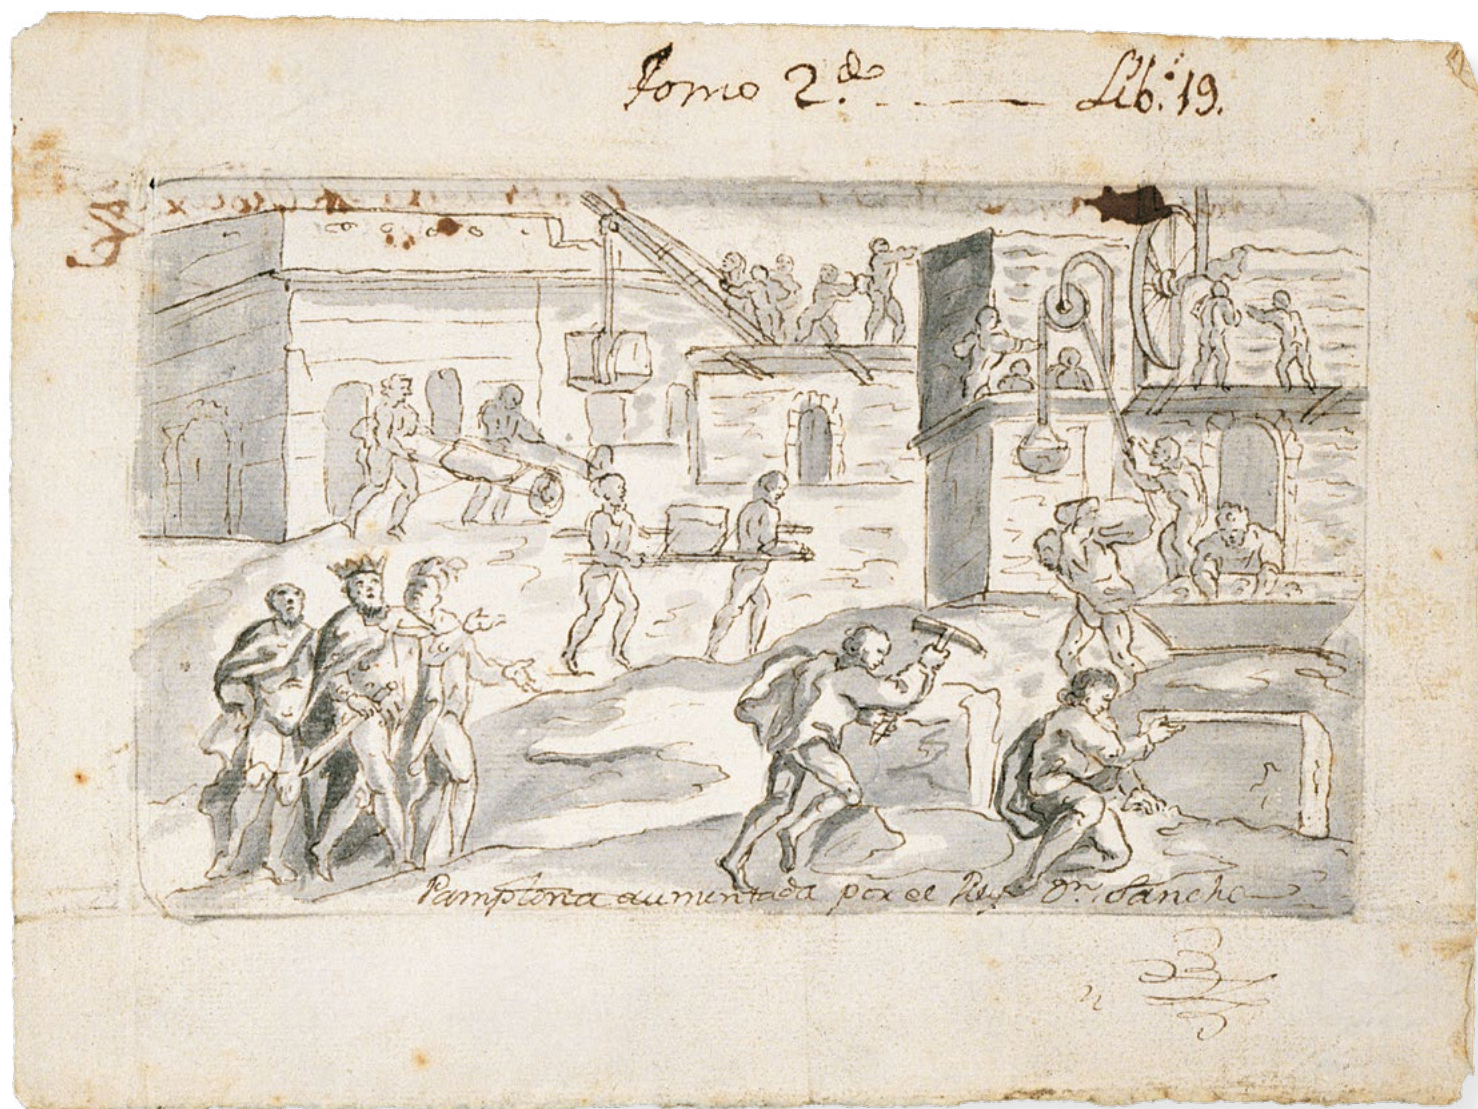 Tomo 2.do - Lib.º 19.
Pamplona aumentada por el Rey Dn. Sancho